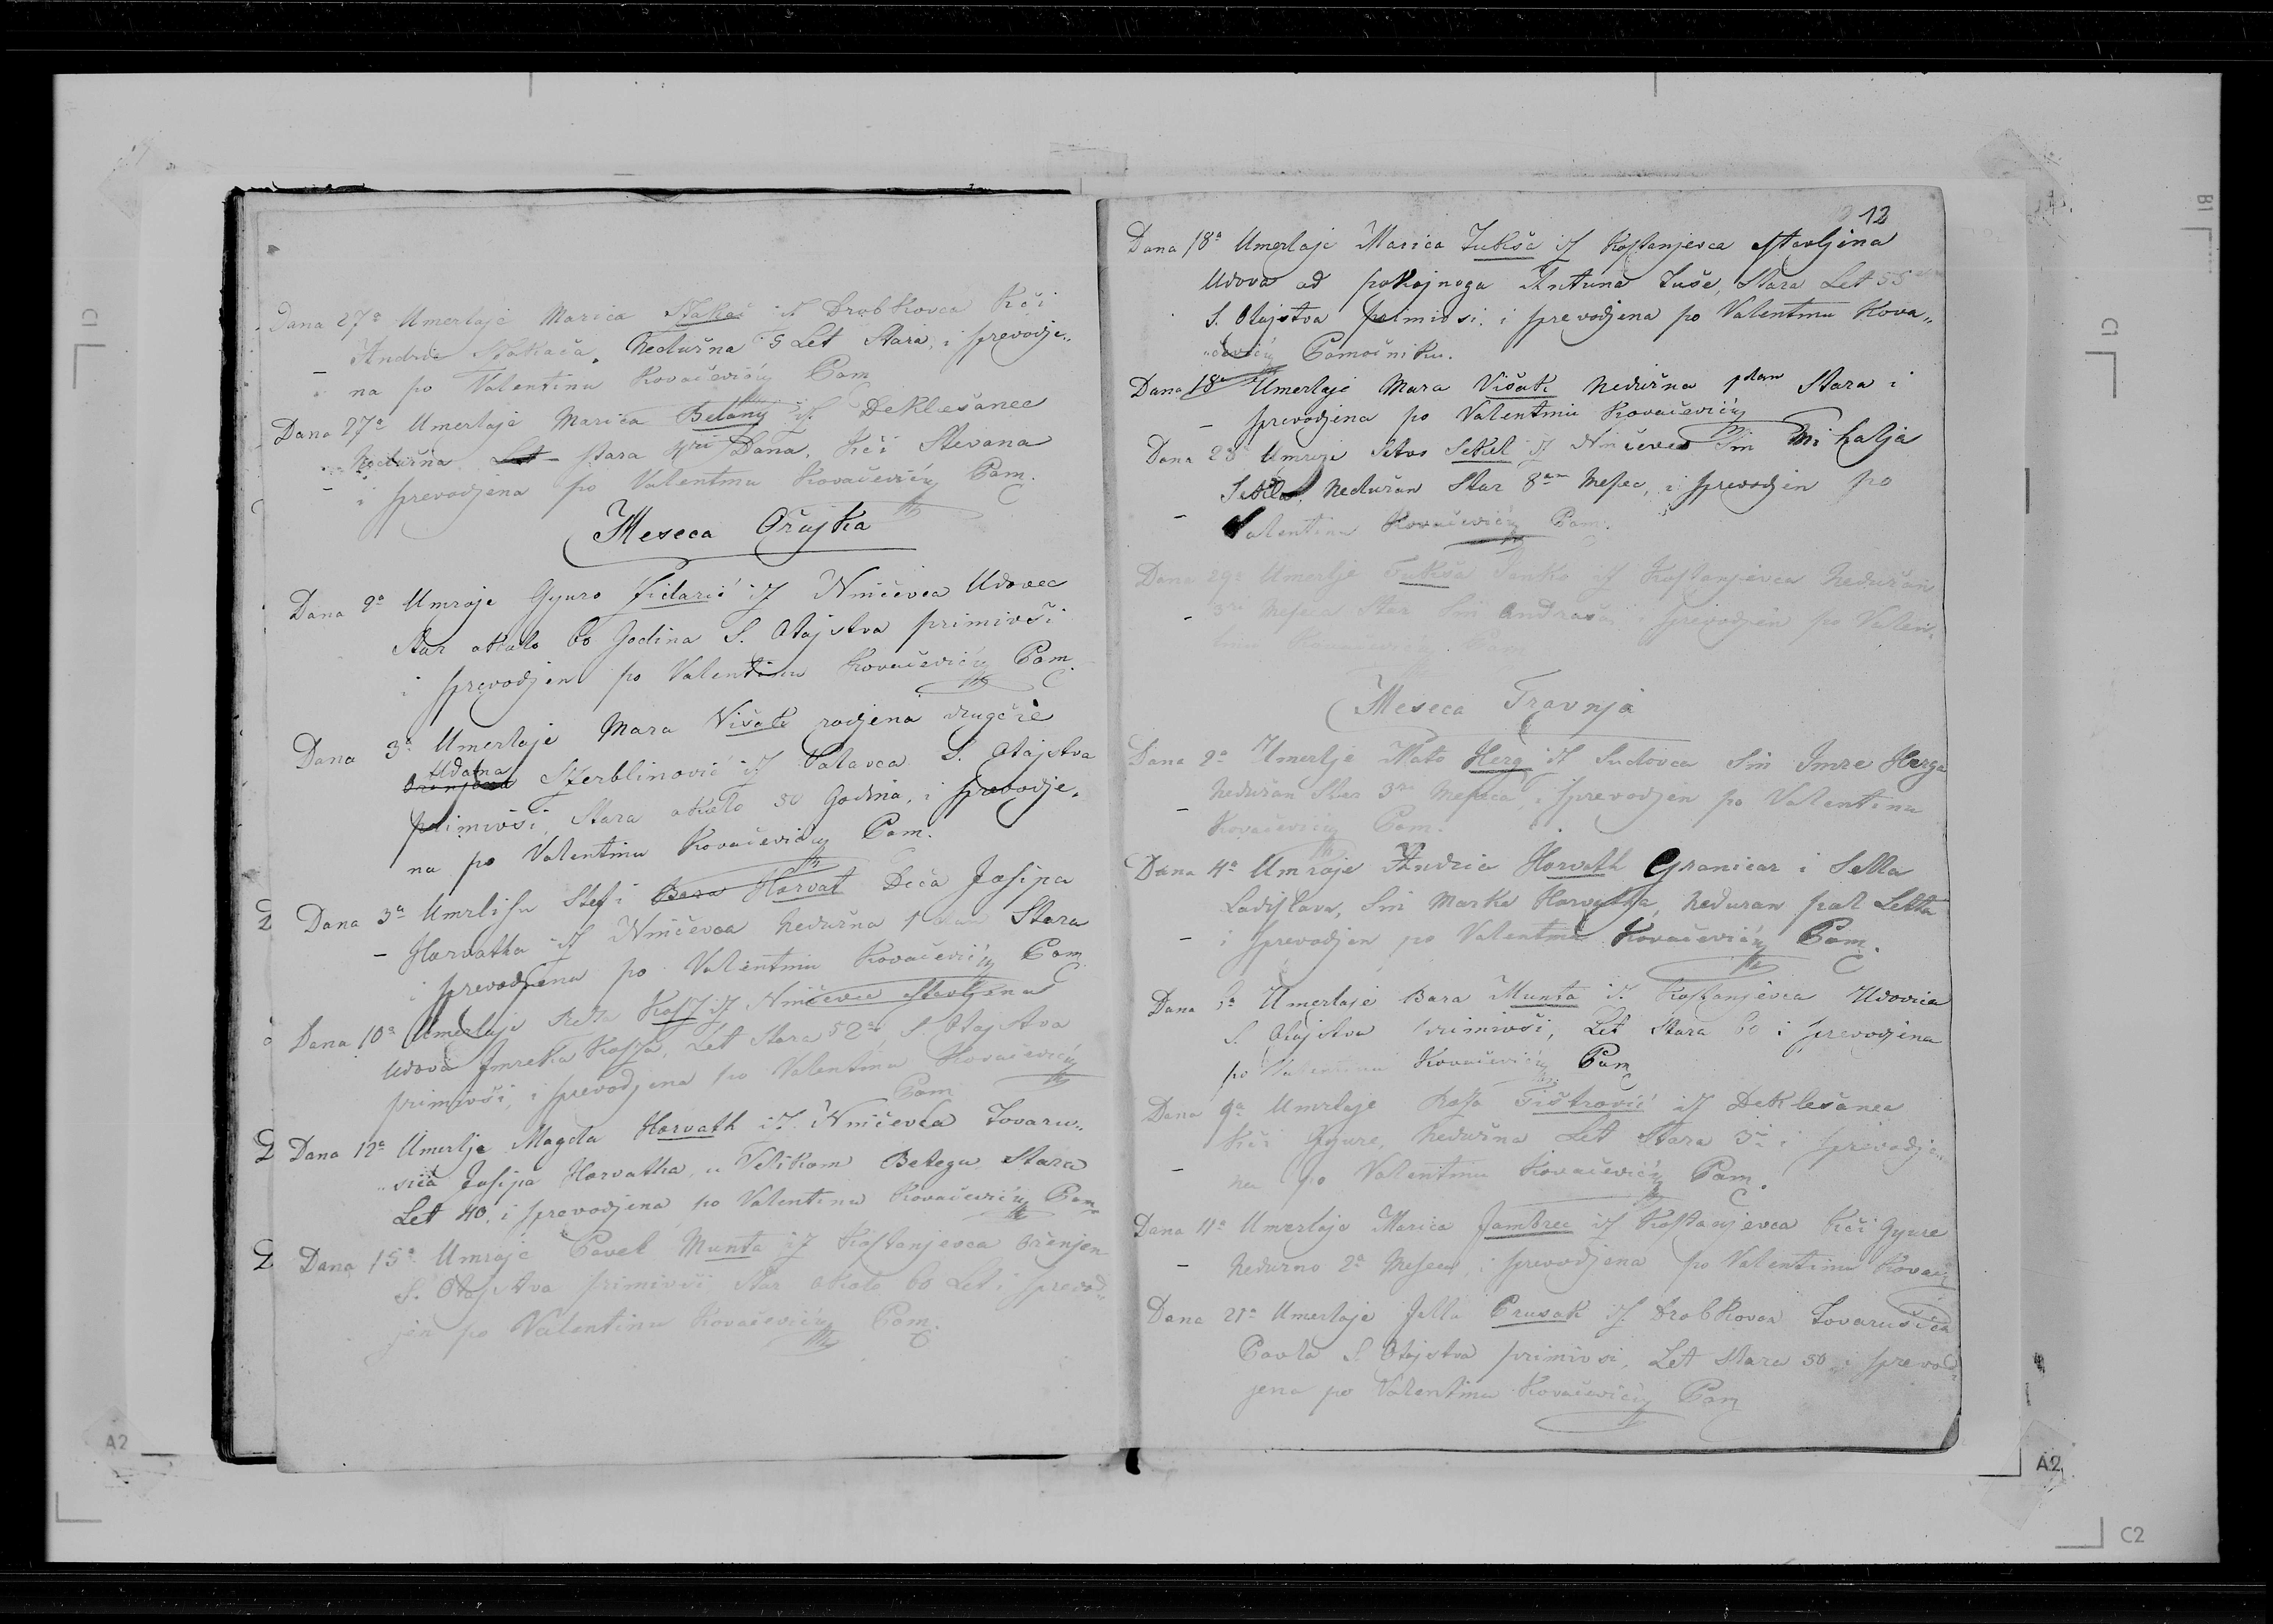 Dana 27a Umerlaje Marica Stakać iz Drobkovca Kći
Andrie Stakača, Nedužna 5 Let Stara, i sprevodje„
na po Valentinu Kovačeviću Pom
Dana 27a Umerlaje Marica Belany iz Deklešanec
Nedužna Let stara Dana, Kći Stevana
i sprevodjena po Valentinu Kovačeviću Pom.
Meseca Ožujka
Dana 2a Umroje Gyuro Fidarić iz Ninčevca Udovec
Star okolo 60 Godina S. Otajstva primivši
i sprevodjen po Valentinu Kovačeviću Pom.
Dana 3a Umerlaje Mara Višak rodjena drugčie
Udatna
Szerblinović iz Valavca S. Otajstva
primivši, Stara okolo 50 Godina, i sprevodje„
na po Valentinu Kovačeviću Pom.
2 Dana 3a Umrlisu Stef i Bara Horvat Deča Josipa
Horvatha iz Ninčevca nedužna 1 Stara
i sprevodjena po Valentinu Kovačeviću Pom
Dana 10a Umerlaje Kosz iz Ninčevca stavljena
Udova Imreka Kosza, Let Stara 52 S. Otajstva
primivši, i sprevodjena po Valentinu Kovačeviću
Pom
2 Dana 12a Umerlje Magda Horvath iz Ninčevca Tovaru„
„sica Josipa Horvatha, u Velikom Betegu Stara
Let 40, i sprevodjena po Valentinu Kovačeviću Pom
2 Dana 15a Umroje Pavel Munta iz Kostanjevca oženjen
S. Otajstva primivši Star okolo 60 Let i sprevod„
jen po Valentinu Kovačeviću Pom.
12
Dana 18a Umerlaje Marica Jukša iz Kostanjevca stavljena
Udova od pokojnoga Antuna Stara Let 55
S. Otajstva primivsi, i sprevodjena po Valentinu Kova„
„čeviću Pomočniku.
Dana 18a Umerlaje Mara Višak Nedužna Stara i
sprevodjena po Valentinu Kovačeviću
Dana 23 Umroje Sekel iz Ninčevca Sin Mihalja
Sekela Nedužan Star 8 Mesec, i sprevodjen po
Valentinu Kovačeviću Pom.
Dana 29a Umerlje Jukša Janko iz Kostanjevca Nedužan
3 Meseca Star Sin Andraša i sprevodjen po Valen„
tinu Kovačeviću Pom
Meseca Travnja
Dana 2a Umerlje Mato Herg iz Sudovca Sin Imre Herga
Nedužan Star 3 Meseca, i sprevodjen po Valentinu
Kovačeviću Pom.
Dana 4a Umroje Andria Horvath Granicar i Sella
Ladislava, Sin Marka Horvatha, nedužan pol Letta
i sprevodjen po Valentinu Kovačeviću Pom.
Dana 6a Umerlaje Bara Munta iz Kostanjevca Udovica
S. Otajstva primivši, Let Stara 60 i sprevodjena
po Valentinu Kovačeviću Pom
Dana 9a Umrlaje Rosa Fištrović iz Deklešanec
Kći Gyure, Nedužna Let Stara 3 i sprevodje„
na po Valentinu Kovačeviću Pom.
Dana 11a Umerlaje Marica Jambrec iz Kostanjevca Kći Gyure
Nedužno 2a Meseca, i sprevodjena po Valentinu Kovač
Dana 21a Umerlaje Jella Prusak iz Drobkovca Tovarušica
Pavla S. Otajstva primivsi, Let Stara 50 i sprevod„
jena po Valentinu Kovačeviću Pom
C1
A2
B1
C1
A2
C2